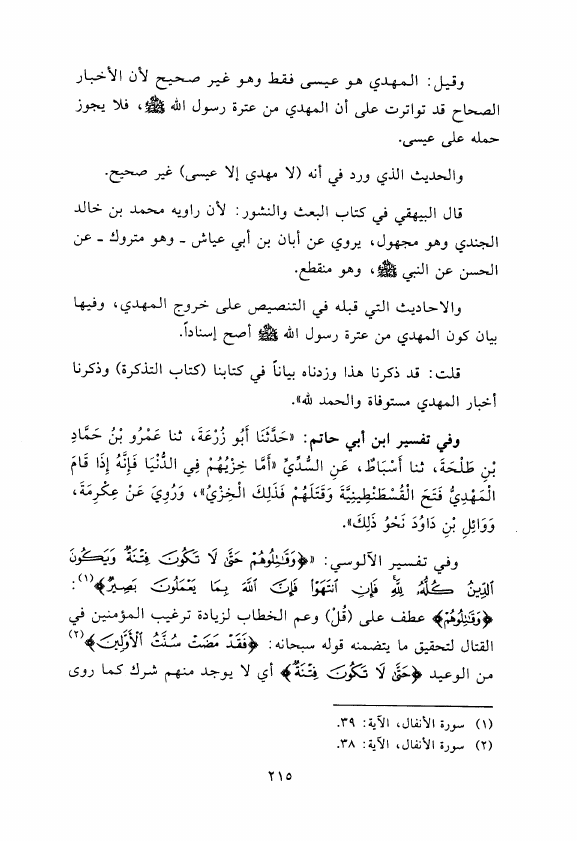 وقيل: المهدي هو عيسى فقط وهو غير صحيح لأن الأخبار
الصحاح قد تواترت على أن المهدي من عترة رسول الله ﷺ، فلا يجوز
حمله على عيسى.
والحديث الذي ورد في أنه (لا مهدي إلا عيسى) غير صحيح.
قال البيهقي في كتاب البعث والنشور: لأن راويه محمد بن خالد
الجندي وهو مجهول، يروي عن أبان بن أبي عياش ـ وهو متروك ـ عن
الحسن عن النبي ﷺ، وهو منقطع.
والاحاديث التي قبله في التنصيص على خروج المهدي، وفيها
بيان كون المهدي من عترة رسول الله ﷺ أصح إسناداً.
قلت: قد ذكرنا هذا وزدناه بياناً في كتابنا (كتاب التذكرة) وذكرنا
أخبار المهدي مستوفاة والحمد لله».
وفي تفسير ابن أبي حاتم: «حَدَّثَنَا أَبُو زُرْعَةَ، ثنا عَمْرُو بْنُ حَمَّادِ
بْنِ طَلْحَةَ، ثنا أَسْبَاطٌ، عَنِ السُّدِّيِّ «أَمَّا خِزْيُهُمْ فِي الدُّنْيَا فَإِنَّهُ إِذَا قَامَ
الْمَهْدِيُّ فَتَحَ الْقُسْطَنْطِينِيَّةَ وَقَتَلَهُمْ فَذَلِكَ الْخِزْيُ»، وَرُوِيَ عَنْ عِكْرِمَةَ،
وَوَائِلِ بْنِ دَاوُدَ نَحْوُ ذَلِكَ».
وفي تفسير الآلوسي: «﴿وَقَٰتِلُوهُمْ حَتَّىٰ لَا تَكُونَ فِتْنَةٌ وَيَكُونَ
ٱلدِّينُ كُلُّهُۥ لِلَّهِ فَإِنِ ٱنتَهَوْاْ فَإِنَّ ٱللَّهَ بِمَا يَعْمَلُونَ بَصِيرٌ﴾(١):
﴿وَقَٰتِلُوهُمْ﴾ عطف على (قُلْ) وعم الخطاب لزيادة ترغيب المؤمنين في
القتال لتحقيق ما يتضمنه قوله سبحانه: ﴿فَقَدْ مَضَتْ سُنَّتُ ٱلْأَوَّلِينَ﴾(٢)
من الوعيد ﴿حَتَّىٰ لَا تَكُونَ فِتْنَةٌ﴾ أي لا يوجد منهم شرك كما روى
(١) سورة الأنفال، الآية: ٣٩.
(٢) سورة الأنفال، الآية: ٣٨.
٢١٥